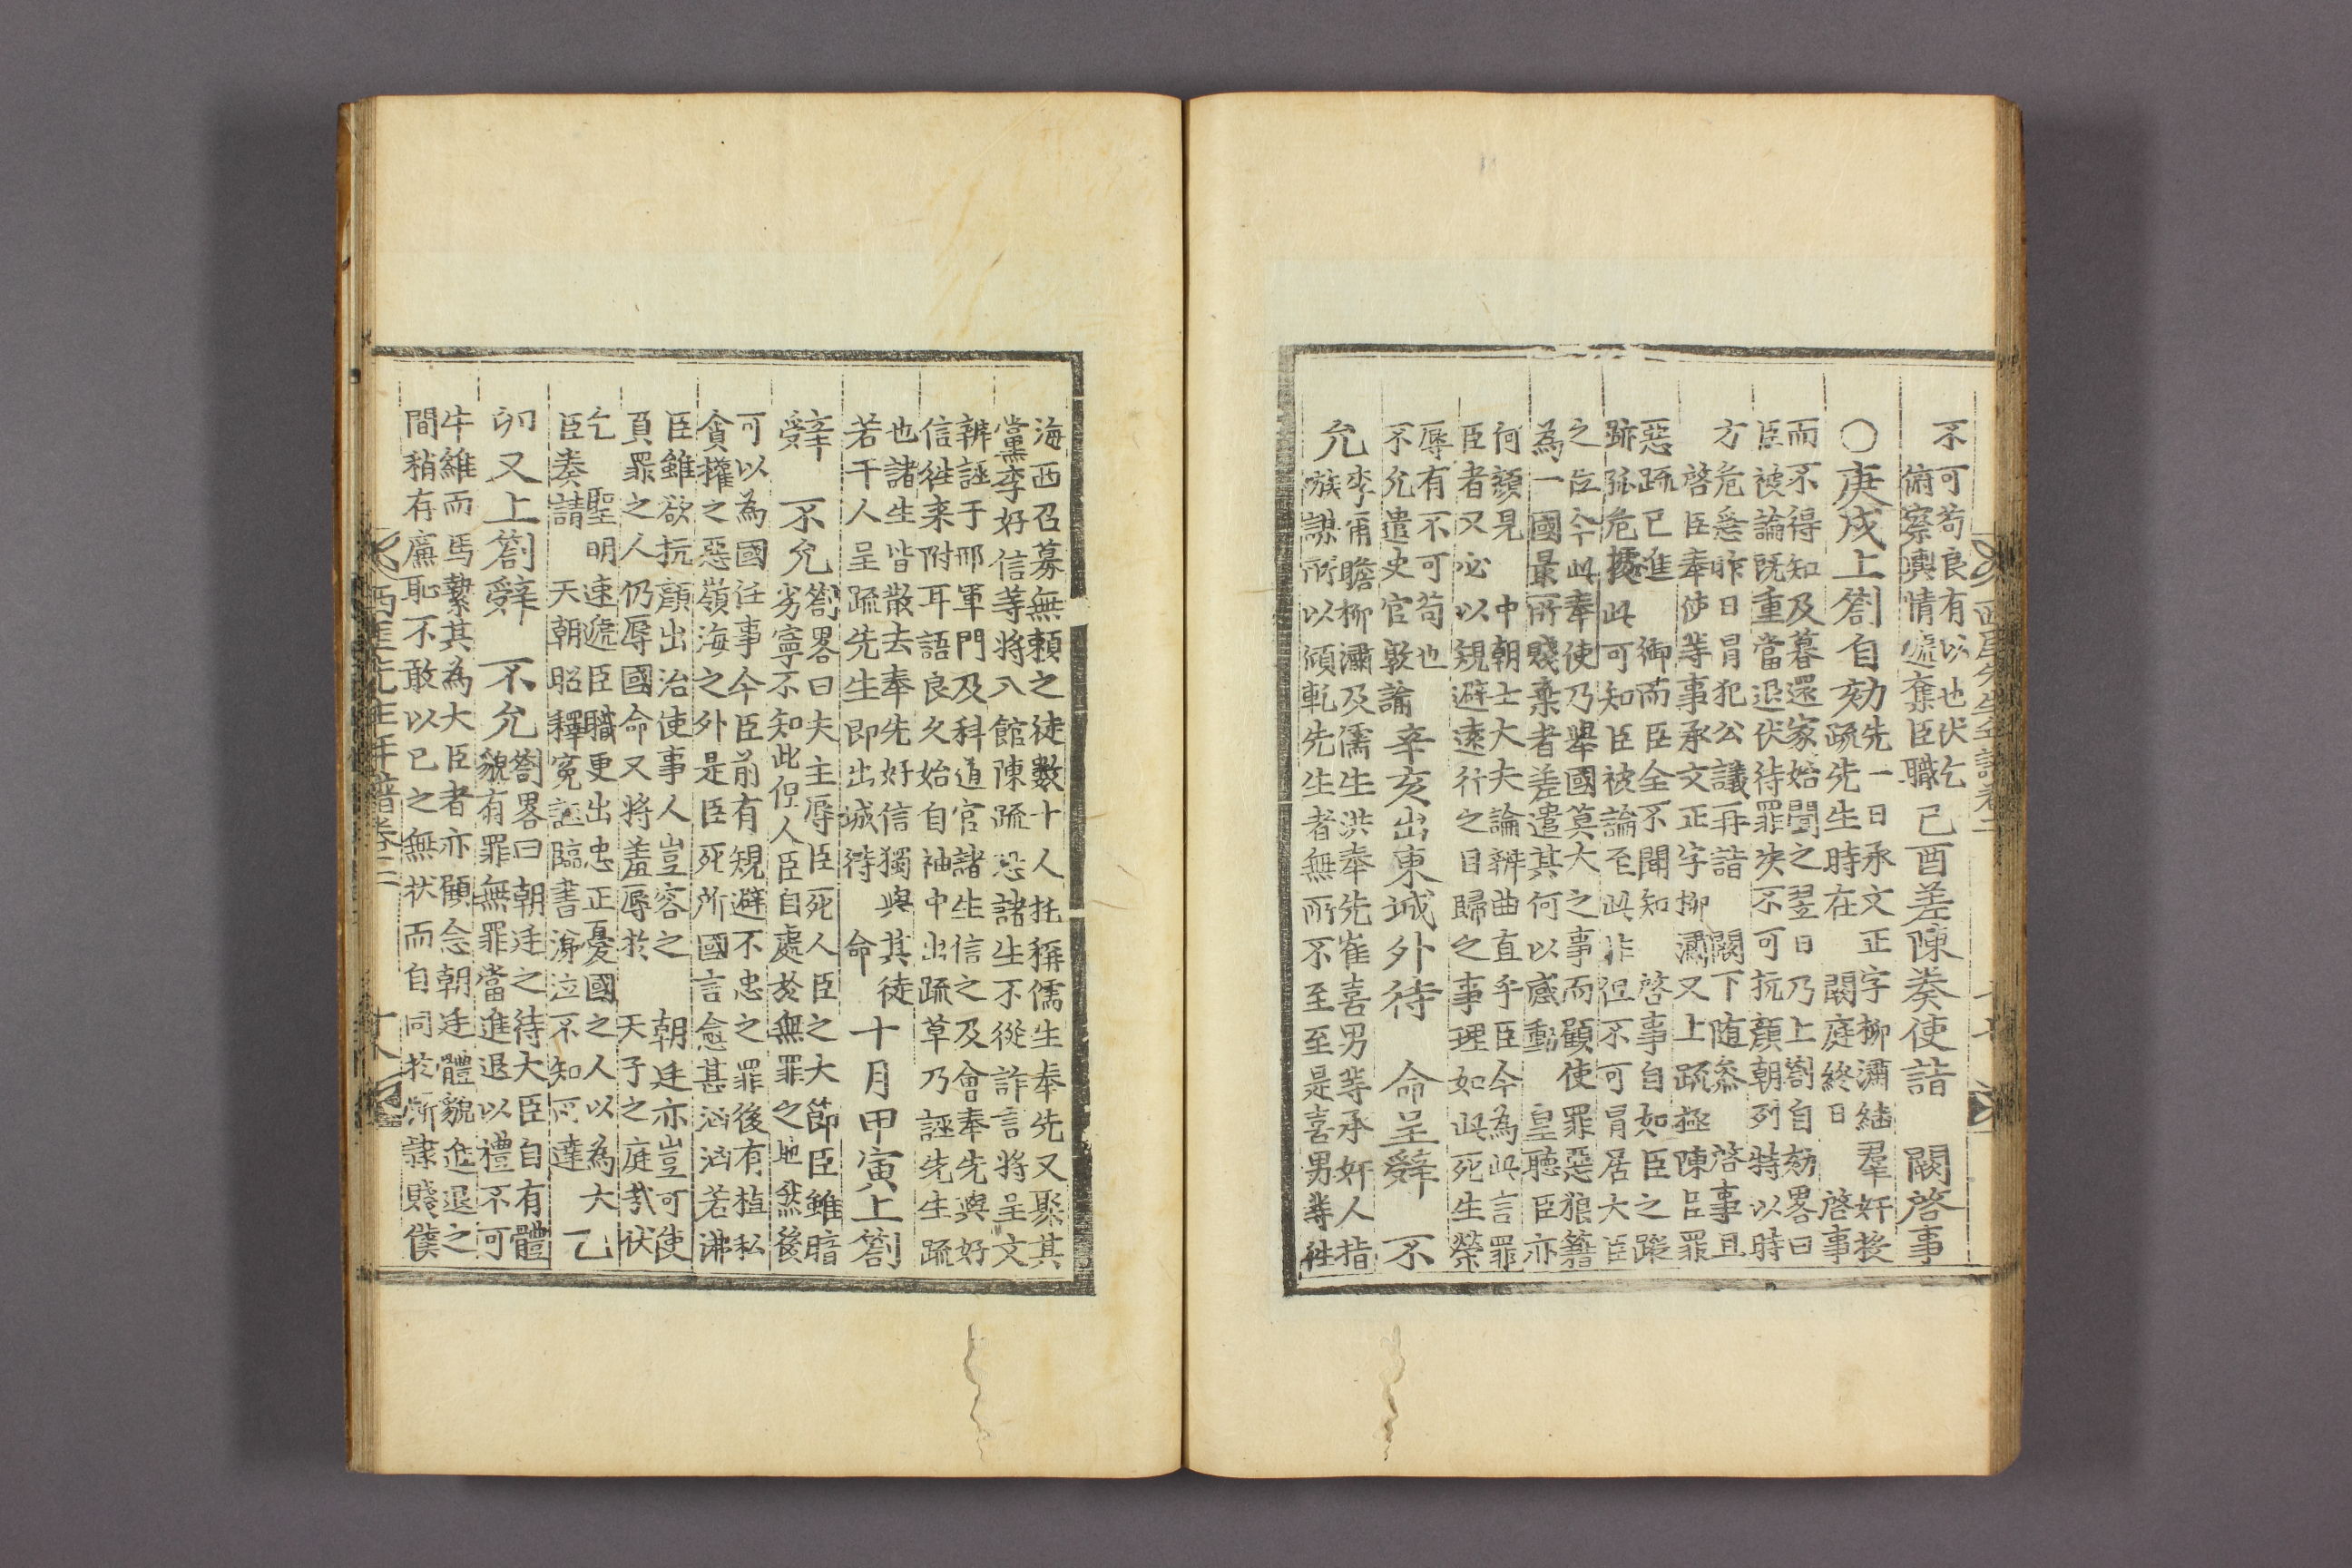 西厓先生年譜卷二
不可苟良有以也伏乞
俯察輿情遞奪臣職
己酉差陳奏使詣 闕啓事
○庚戌上箚自劾
先一日承文正字柳潚結羣奸投
疏先生時在 闕庭終日 啓事
而不得知及暮還家始聞之翌日乃上箚自劾畧曰
臣被論既重當退伏待罪决不可抗顔朝列特以時
方危急昨日冒犯公議再詣 闕下随叅 啓事且
啓臣奉使等事承文正字柳潚又上疏極陳臣罪
惡疏已進 御而臣全不聞知 啓事自如臣之蹤
跡孤危據此可知臣被論至此非但不可冒居大臣
之位今此奉使乃擧國莫大之事而顧使罪惡狼籍
為一國最所賤棄者差遣其何以感動 皇聽臣亦
何顔見 中朝士大夫論辨曲直乎臣今為此言罪
臣者又必以規避遠行之目歸之事理如此死生榮
辱有不可苟也
不允遣史官敦諭
辛亥出東城外待 命呈辭 不
允
李甬瞻柳潚及儒生洪奉先崔喜男等承奸人指
嗾謀所以傾軋先生者無所不至至是喜男等往
海西召募無頼之徒數十人托稱儒生奉先又聚其
黨李好信等將入館陳疏恐諸生不從詐言將呈文
辨誣于邢軍門及科道官諸生信之及會奉先與好
信徃来附耳語良久始自袖中出疏草乃誣先生疏
也諸生皆散去奉先好信獨與其徒
若干人呈疏先生即出城待 命
十月甲寅上箚
辭 不允
箚畧曰夫主辱臣死人臣之大節臣雖暗
劣寧不知此但人臣自處於無罪之地然後
可以為國任事今臣前有規避不忠之罪後有植私
貪權之惡嶺海之外是臣死所國言愈甚滔滔若沸
臣雖欲抗顔出治使事人豈容之 朝廷亦豈可使
負罪之人仍辱國命又將羞辱於 天子之庭哉伏
乞 聖明速遞臣職更出忠正憂國之人以為大
臣奏請 天朝昭釋冤誣臨書涕泣不知所達
乙
卯又上箚辭 不允
箚畧曰朝廷之待大臣自有體
貌有罪無罪當進退以禮不可
牛維而馬縶其為大臣者亦顧念朝廷體貌進退之
間稍存廉恥不敢以已之無状而自同於所隷賤僕
西厓先生年譜卷二 十八